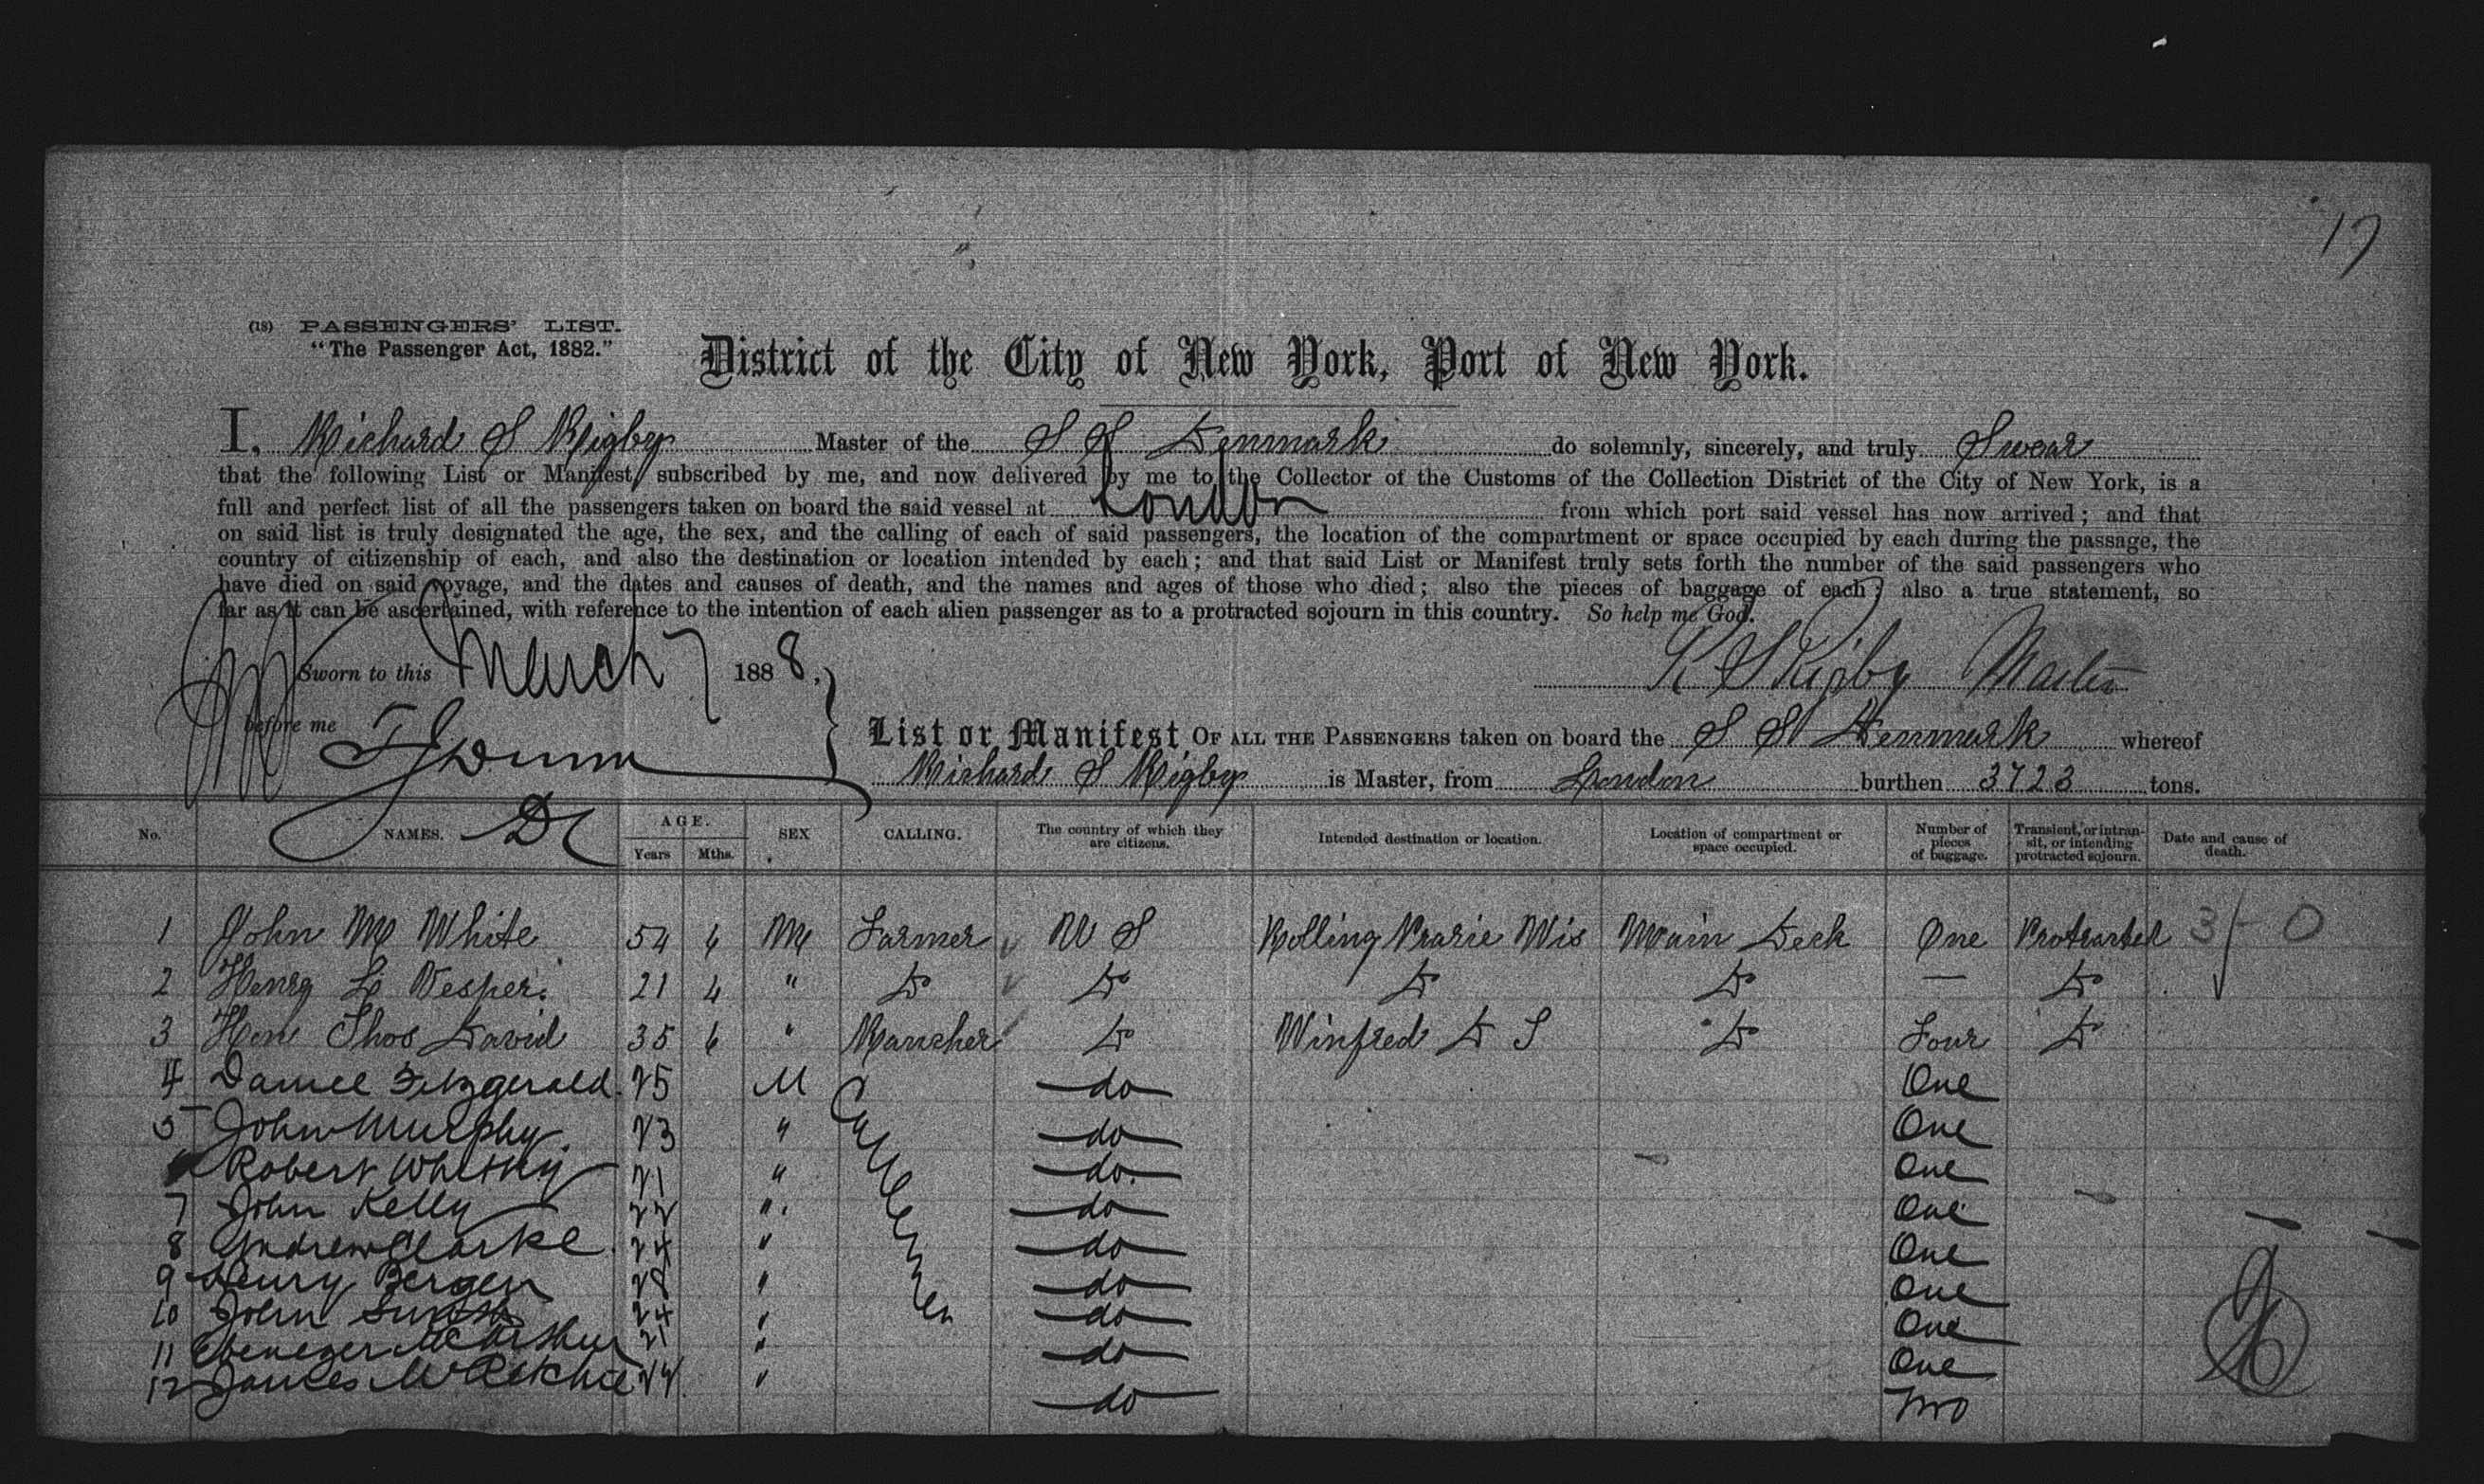 17
(18) PASSENGERS' LIST.
"The Passenger Act, 1882."
District of the City of New York, Port of New York.
I, Richard S Rigby Master of the S S Denmark do solemnly, sincerely, and truly Swear
that the following List or Manifest, subscribed by me, and now delivered by me to the Collector of the Customs of the Collection District of the City of New York, is a
full and perfect list of all the passengers taken on board the said vessel at London from which port said vessel has now arrived; and that
on said list is truly designated the age, the sex, and the calling of each of said passengers, the location of the compartment or space occupied by each during the passage, the
country of citizenship of each, and also the destination or location intended by each; and that said List or Manifest truly sets forth the number of the said passengers who
have died on said voyage, and the dates and causes of death, and the names and ages of those who died; also the pieces of baggage of each; also a true statement, so
far as it can be ascertained, with reference to the intention of each alien passenger as to a protracted sojourn in this country. So help me God.
Sworn to this March 7 1888,
R S Rigby Master
before me
Dunn
List or Manifest, OF ALL THE PASSENGERS taken on board the S S Denmark whereof
Richard S Rigby is Master, from London burthen 3723 tons.
No. NAMES. AGE. Years Mths. SEX CALLING. The country of which they are citizens. Intended destination or location. Location of compartment or space occupied. Number of pieces of baggage. Transient, or intransit, or intending protracted sojourn. Date and cause of death.
1 John M White 54 6 M Farmer U S Rolling Prarie Wis Main Deck One Protracted 3/- 0
2 Henry L Vesper 21 4 " Do Do Do Do — Do
3 Hon Thos David 35 6 " Rancher Do Winfred D T Do Four Do
4 Daniel Fitzgerald 25 M Cattlemen do One
5 John Murphy 23 " do One
Robert 21 " do. One
7 John Kelly 22 " do One
8 Andrew Clarke 24 " do One
9 Henry Bergen 28 " do One
10 John Smith 24 " do One
11 Ebenezer McArthur 21 " do One
12 James McRitchie 24 " do Two